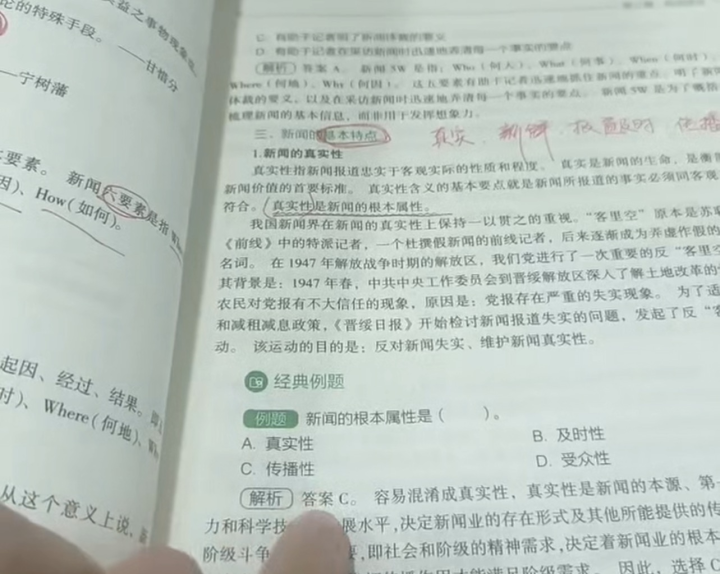 论的特殊手段。
——甘惜分
——宁树藩
要素。 新闻六要素是指
因)、How(如何)。
起因、经过、结果。
时)、Where(何地)、
从这个意义上说，
C. 有助于记者明了新闻体裁的要义
D. 有助于记者在采访新闻时迅速地弄清每一个事实的要点
解析 答案 A。 新闻 5W 是指：Who(何人)、What(何事)、When(何时)、
Where(何地)、Why(何因)。 这五要素有助于记者迅速地抓住新闻的重点、明了新闻
体裁的要义，以及在采访新闻时迅速地弄清每一个事实的要点。 新闻 5W 是为了
梳理新闻的基本信息，而非用于发挥想象力。
三、新闻的基本特点 真实、新鲜、报道及时、传播
1.新闻的真实性
真实性指新闻报道忠实于客观实际的性质和程度。 真实是新闻的生命，是衡
新闻价值的首要标准。 真实性含义的基本要点就是新闻所报道的事实必须同客观
符合。 真实性是新闻的根本属性。
我国新闻界在新闻的真实性上保持一以贯之的重视。“客里空”原本是苏
《前线》中的特派记者，一个杜撰假新闻的前线记者，后来逐渐成为弄虚作假的
名词。 在 1947 年解放战争时期的解放区，我们党进行了一次重要的反“客里空
其背景是：1947 年春，中共中央工作委员会到晋绥解放区深入了解土地改革的
农民对党报有不大信任的现象，原因是：党报存在严重的失实现象。 为了适
和减租减息政策，《晋绥日报》开始检讨新闻报道失实的问题，发起了反“客
动。 该运动的目的是：反对新闻失实、维护新闻真实性。
经典例题
例题 新闻的根本属性是( )。
A. 真实性 B. 及时性
C. 传播性 D. 受众性
解析 答案 C。 容易混淆成真实性，真实性是新闻的本源、第
力和科学技 展水平，决定新闻业的存在形式及其他所能提供的传
阶级斗争 ，即社会和阶级的精神需求，决定着新闻业的根本
因此，选择 C